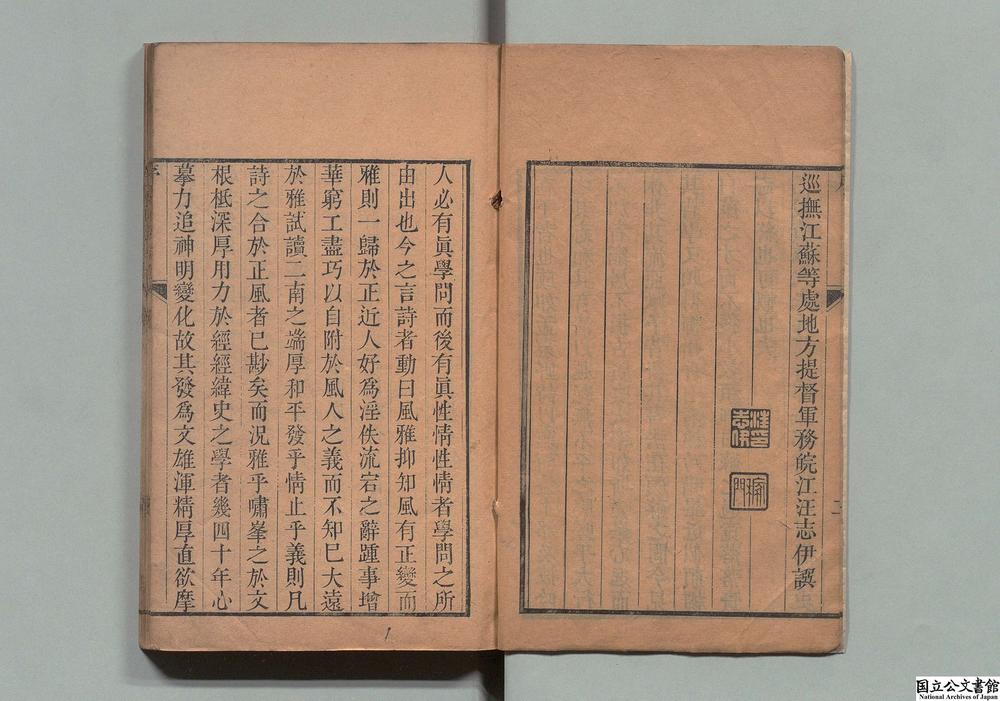 巡撫江蘇等處地方提督軍務皖江汪志伊譔
人必有眞學問而後有眞性情性情者學問之所
由出也今之言詩者動曰風雅抑知風有正變而
雅則一歸於正近人好為淫佚流宕之辭踵事增
華窮工盡巧以自附於風人之義而不知巳大遠
於雅試讀二南之端厚和平發乎情止乎義則凡
詩之合於正風者巳尠矣而況雅乎嘯峯之於文
根柢深厚用力於經經緯史之學者幾四十年心
摹力追神明變化故其發爲文雄渾精厚直欲摩
序
二
国立公文書館
National Archives of Japan